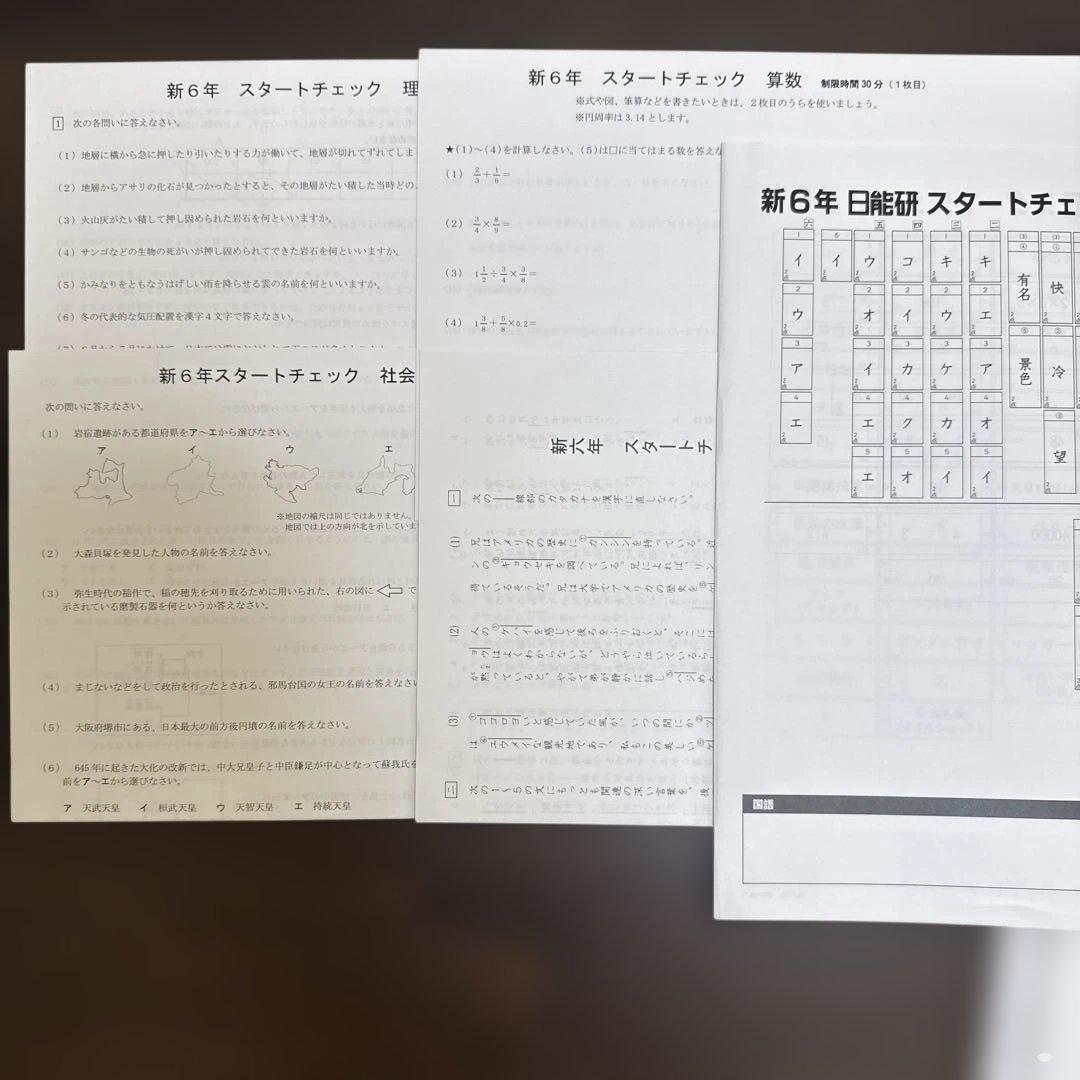 新６年　スタートチェック　理
1 次の各問いに答えなさい。
(1) 地層に横から急に押したり引いたりする力が働いて、地層が切れてずれてしま
(2) 地層からアサリの化石が見つかったとすると、その地層がたい積した当時どの
(3) 火山灰がたい積して押し固められた岩石を何といいますか。
(4) サンゴなどの生物の死がいが押し固められてできた岩石を何といいますか。
(5) かみなりをともなうはげしい雨を降らせる雲の名前を何といいますか。
(6) 冬の代表的な気圧配置を漢字４文字で答えなさい。
新６年　スタートチェック　算数　制限時間30分（１枚目）
※式や図、筆算などを書きたいときは、２枚目のうらを使いましょう。
※円周率は3.14とします。
★(1)～(4)を計算しなさい。(5)は□に当てはまる数を答えな
(1) 2/3＋1/6＝
(2) 3/4×8/9＝
(3) 1 1/2÷3/4×3/8＝
(4) 1 3/8＋5/8×0.2＝
新６年スタートチェック　社会
次の問いに答えなさい。
(1) 岩宿遺跡がある都道府県をア～エから選びなさい。
ア　イ　ウ　エ
※地図の縮尺は同じではありません。
地図では上の方向が北を示していま
(2) 大森貝塚を発見した人物の名前を答えなさい。
(3) 弥生時代の稲作で、稲の穂先を刈り取るために用いられた、右の図に⇦で
示されている磨製石器を何というか答えなさい。
(4) まじないなどをして政治を行ったとされる、邪馬台国の女王の名前を答えなさい
(5) 大阪府堺市にある、日本最大の前方後円墳の名前を答えなさい。
(6) 645年に起きた大化の改新では、中大兄皇子と中臣鎌足が中心となって蘇我氏を
前をア～エから選びなさい。
ア　天武天皇　イ　桓武天皇　ウ　天智天皇　エ　持統天皇
新六年　スタートチ
一 次の――線部のカタカナを漢字に直しなさい。
(1) 兄はアメリカの歴史に①カンシンを持っている。近
ンの③ギョウセキを調べている。兄によれば、リン
待ているそうだ。兄は大学でアメリカの歴史を⑤ケ
(2) 人の①ケハイを感じて後ろをふりむくと、そこには
ョウはよくわからないが、どうやら泣いているら
が黙っていると、やがて弟が静かに話し⑤ハジめ
(3) ①ココロヨいと感じていた風が、いつの間にか②ツ
は④ユウメイな観光地であり、私もこの美しい⑤ケ
二 次の１～５の文にもっとも関連の深い言葉を、後
新６年 日能研 スタートチェ
六　五　四　三　二
1 イ　6 イ　1 ウ　1 コ　1 キ　1 キ
2 ウ　2 オ　2 イ　2 ウ　2 エ
3 ア　3 イ　3 カ　3 ケ　3 ア
4 エ　4 エ　4 ク　4 カ　4 オ
5 エ　5 オ　5 イ　5 イ
(3) ④ 有名　(3) ① 快
⑤ 景色　② 冷
③ 望
国語